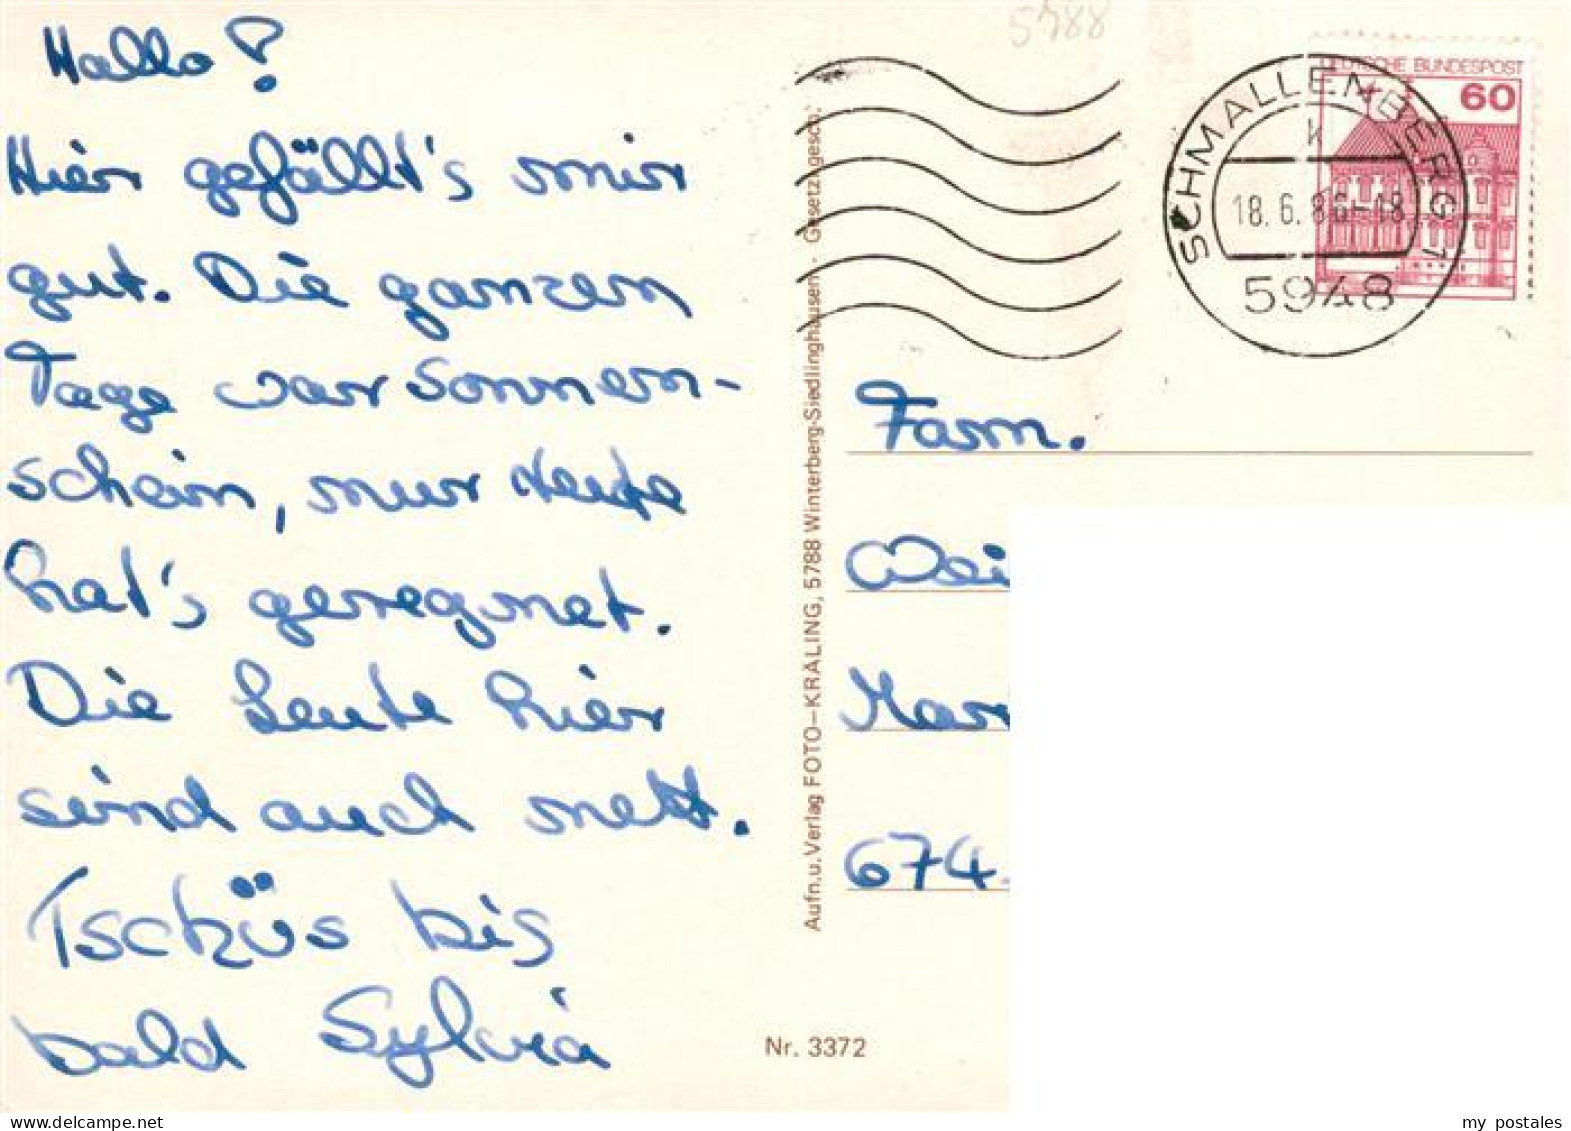 Hallo!
Hier gefällt's mir
gut. Die ganzen
Tage war Sonnen-
schein, nur Heute
hat's geregnet.
Die Leute hier
sind auch nett.
Tschüs bis
bald Sylvia
Aufn.u.Verlag FOTO–KRALING, 5788 Winterberg-Siedlinghausen - Gesetzl.gesch.
Nr. 3372
5788
DEUTSCHE BUNDESPOST
60
SCHMALLENBERG 1
k
18.6.86-18
5948
Fam.
Wei
Mar
674
my postales